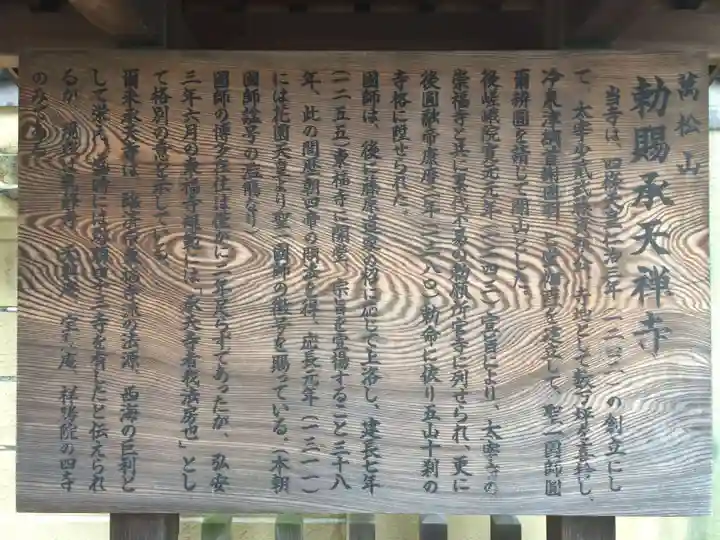 萬松山
勅賜承天禅寺
当寺は、四條天皇仁治三年(一二四二)の創立にし
て、太宰少貮武藤資頼 寺地として数万坪を喜捨し、
冷泉津綱首謝國明 を建立して、聖一國師圓
爾辨圓を請して開山とした。
後嵯峨院寛元元年(一二四三)宣旨により、太宰府の
崇福寺と共に累代不易の勅願所官寺に列せられ、更に
後圓融帝康暦二年(一三八〇)勅命に依り五山十刹の
寺格に陞せられた。
國師は、後に藤原道家の招に応じて上洛し、建長七年
(一二五五)東福寺に開堂、宗旨を宣揚すること三十八
年、此の間歴朝四帝の聞法を得、應長元年(一三一一)
には花園天皇より聖一國師の徽号を賜っている。(本朝
國師諡号の
國師の博多在住は僅かに二年足らずであったが、弘安
三年六月の東福寺規範には「承天寺者我法房也」とし
て格別の意を示している。
爾来承天寺は、臨済宗東福寺派の法源、西海の巨刹と
して栄え、盛時には塔頭四十三寺を有したと伝えられ
るが、現在は 天 庵 宝 庵 祥勝院の四寺
のみと